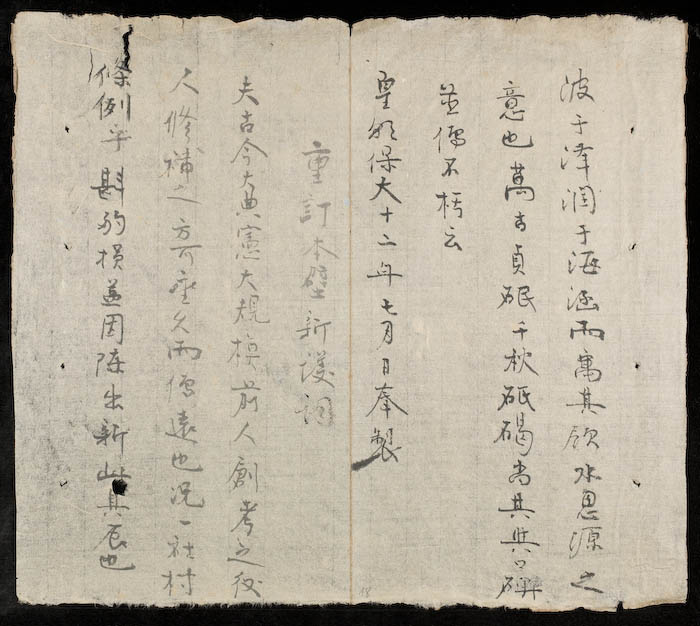 波于泽润于海涵而寓其飲水思源之
意也萬古貞珉千秋砥碣尚其與口碑
並傳不朽云
皇朝保大十二年七月日奉製
重訂本壁新詞
夫古今大典憲大規模前人創之後
人修補之方可垂久而傳遠也况一社村
條例乎斟酌損益因陳出新此其辰也